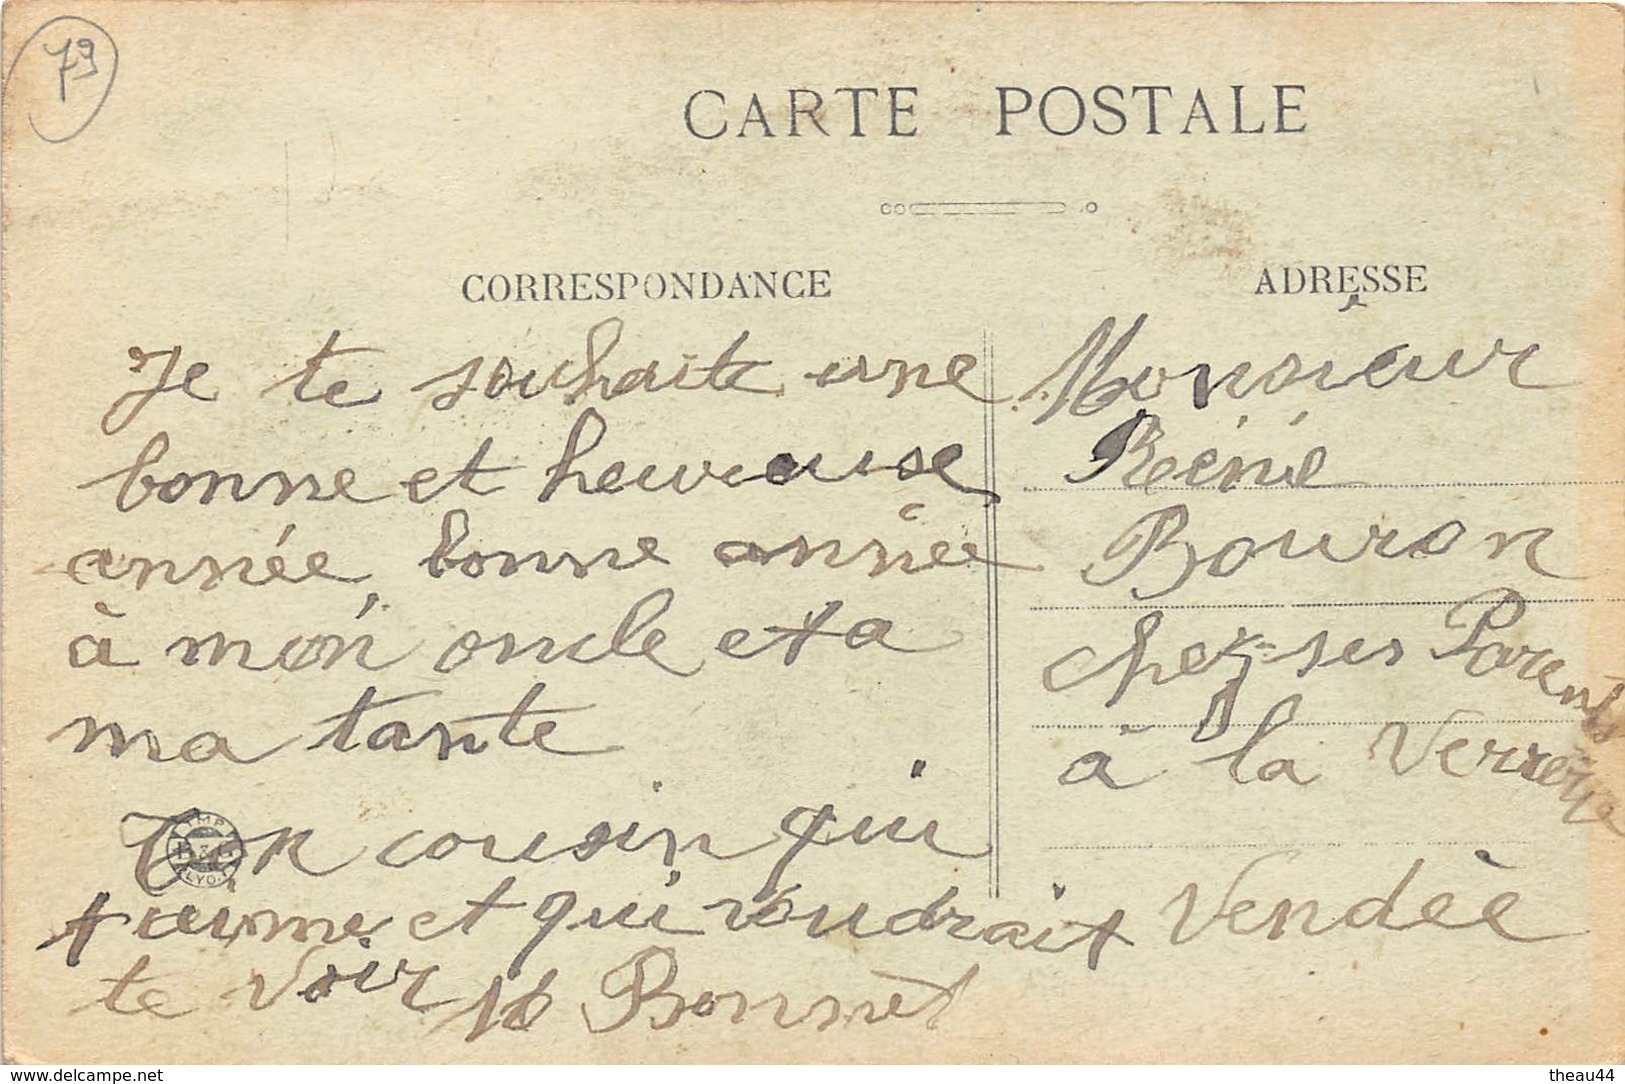 79
CARTE POSTALE
CORRESPONDANCE
Je te souhaite une
bonne et heureuse
année, bonne année
à mon oncle et a
ma tante
Ton cousin qui
t'aime et qui voudrait
te voir M Bonnet
ADRESSE
Monsieur
Réiné
Bouron
chez ses Parents
à la Verrerye
Vendée
www.delcampe.net
theau44